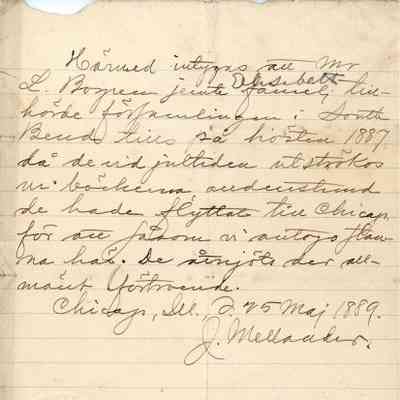 Härmed intygas att Mr
L. Bogren jemte familj till-
hörde församlingen i South
Bend tills på hösten 1887
då de vid jultiden utströkos
ur böckerna
de hade flyttat till Chicago
för att såsom vi antogo stan-
na här. De åtnjöto der all-
mänt förtroende.
Chicago, Ill., d. 25 Maj 1889.
J. Mellander.